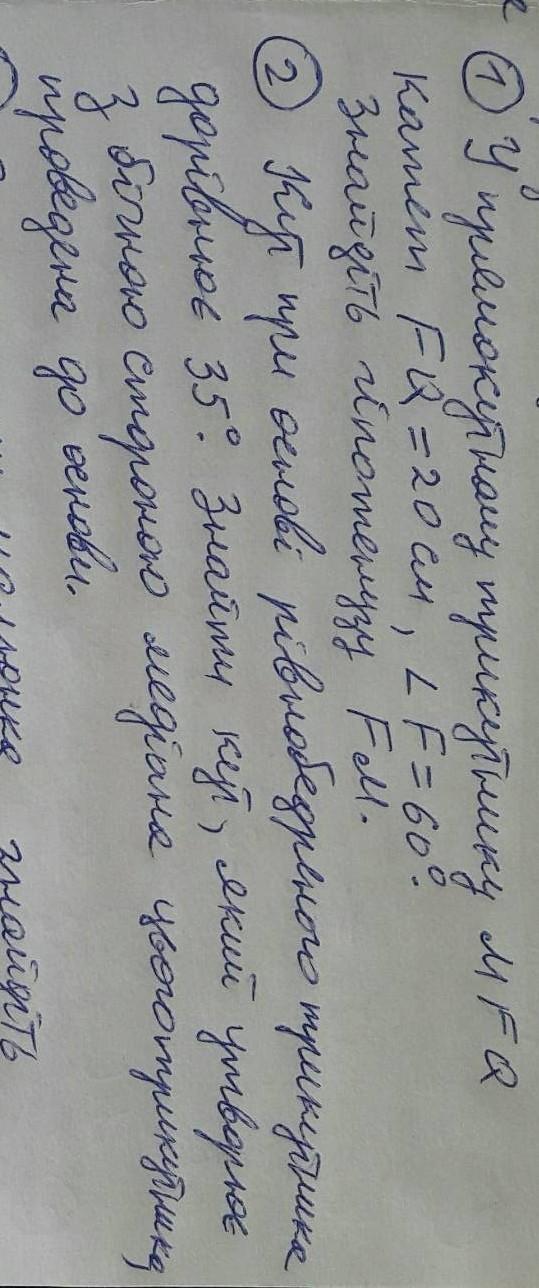 ① У прямокутному трикутнику MFQ
катет FQ = 20 см, ∠F = 60°.
Знайдіть гіпотенузу FM.
② Кут при основі рівнобедреного трикутника
дорівнює 35°. Знайти кут, який утворює
з бічною стороною медіана цього трикутника,
проведена до основи.
знайдіть